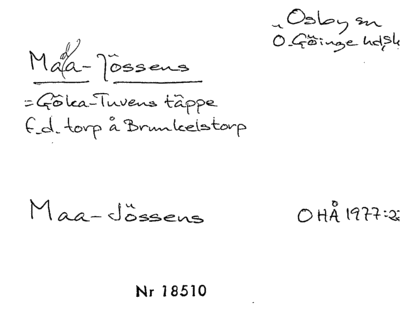 Osby sn
Ö. Göinge hd, sk
Mada-Jössens
= Göka-Tuvens täppe
f.d. torp å Brunkelstorp
Maa-Jössens
OHÅ 1977:22
Nr 18510